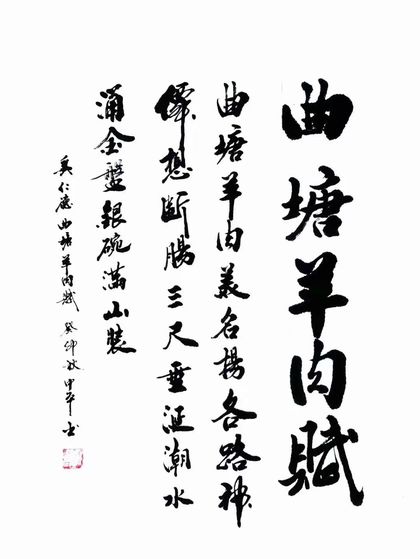 曲塘羊肉賦
曲塘羊肉美名揚各路神
僊想斷腸三尺垂涎潮水
湧金盤銀碗滿山裝
吳仁德曲塘羊肉賦癸